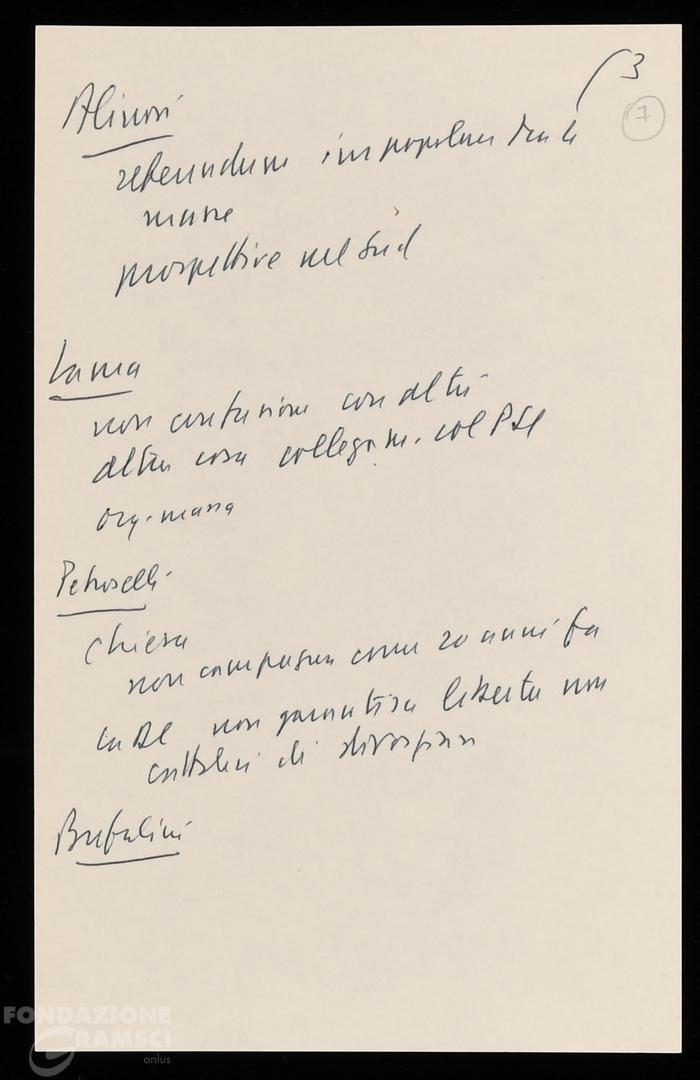 3
7
Alinovi
referendum impopolare tra le
masse
prospettive nel Sud
Lama
non confusione con altri
altra cosa collegam. col PSI
org. massa
Petroselli
Chiesa
non campagna come 20 anni fa
la DC non garantisca libertà non
cattolici di divorziare
Bufalini
FONDAZIONE
GRAMSCI
onlus